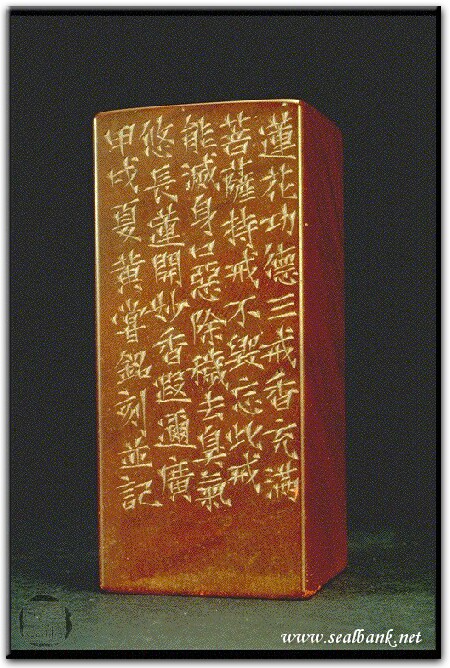 蓮花功德三戒香充滿
菩薩持戒不毀忘此戒
能滅身口惡除穢去臭氣
悠長蓮開妙香遐邇廣
甲戌夏黃嘗銘刻並記
www.sealbank.net